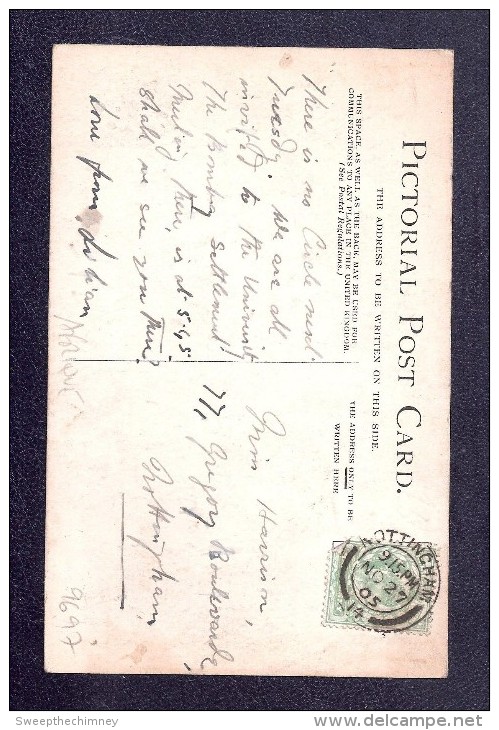 PICTORIAL POST CARD.
THE ADDRESS TO BE WRITTEN ON THIS SIDE.
THIS SPACE, AS WELL AS THE BACK, MAY BE USED FOR
COMMUNICATIONS TO ANY PLACE IN THE UNITED KINGDOM.
(See Postal Regulations.)
THE ADDRESS ONLY TO BE
WRITTEN HERE
There is no Circle next
Tuesday. We are all
invited to the University
The Bombay Settlement
Meeting there is at 5-45
Shall we see you there?
Love from Lilian
Miss Harrison,
77, Gregory Boulevarde,
Nottingham
NOTTINGHAM
9.15PM
NO 27
05
14
9697
Sweepthechimney
delcampe.net